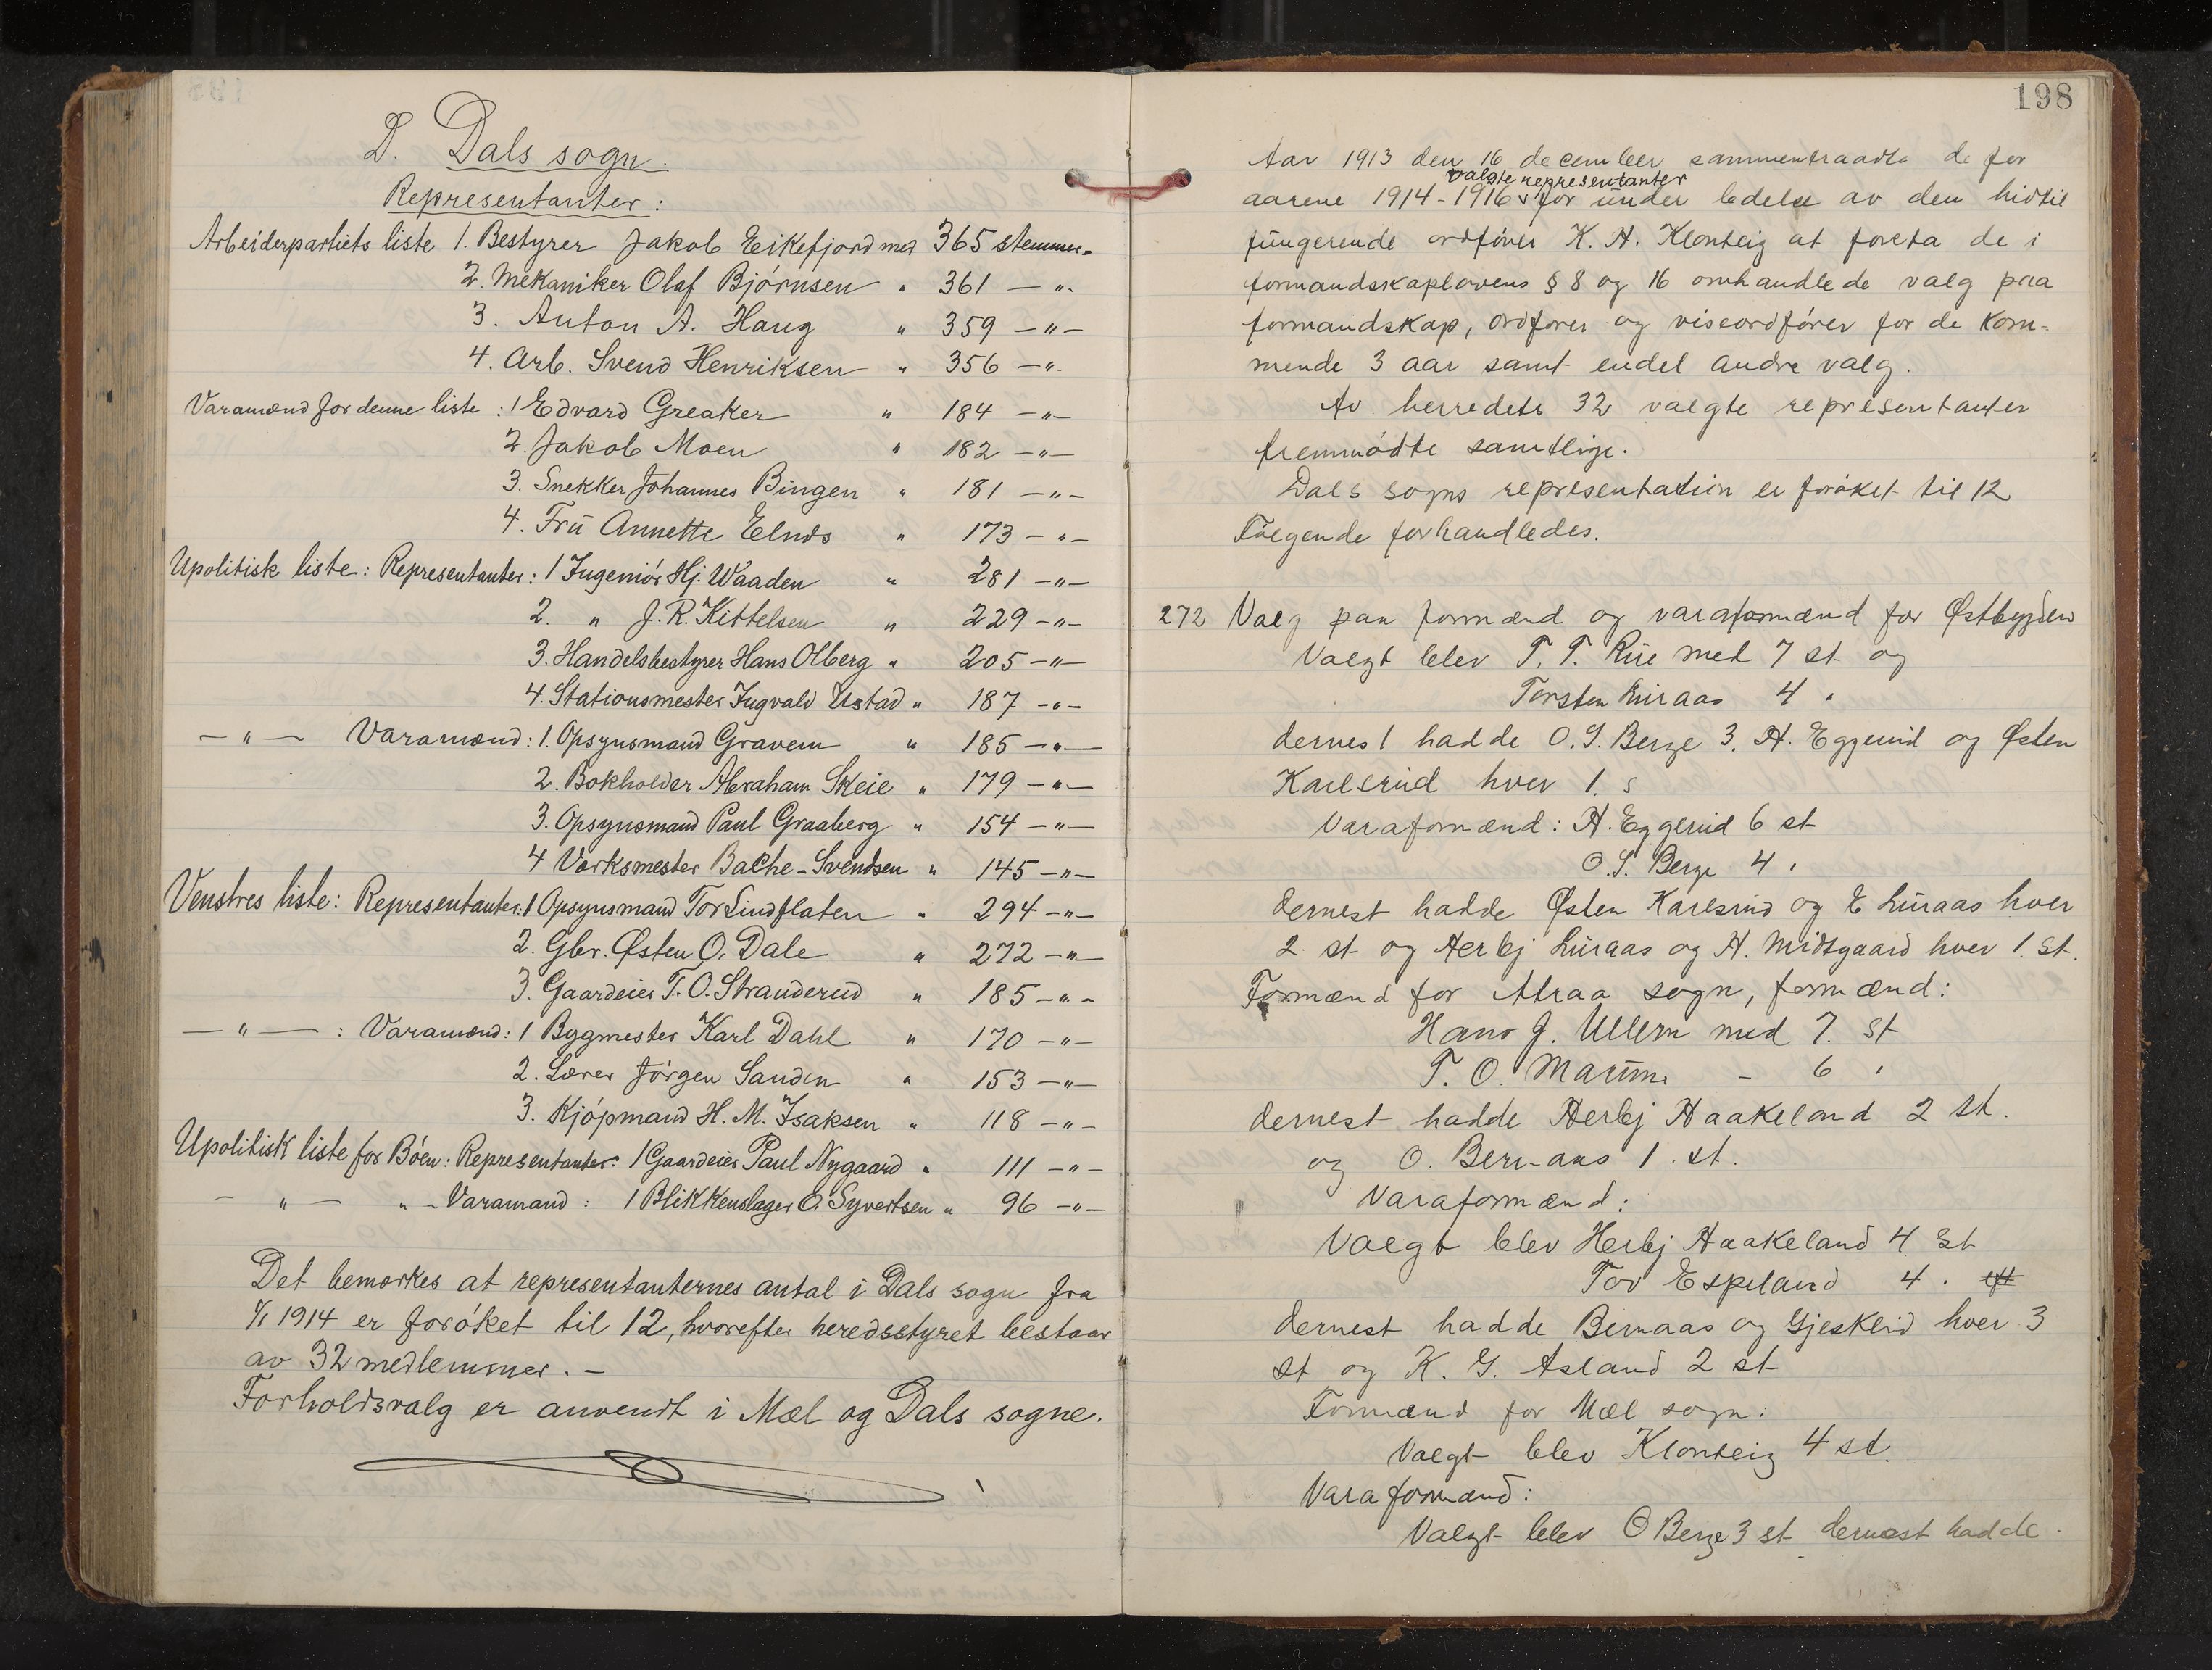 D. Dals sogn.
Representanter:
Arbeiderpartiets liste 1. Bestyrer Jakob Eikefjord med 365 stemmer.
2. Mekaniker Olaf Bjørnsen " 361 — " -
3. Anton A. Haug " 359 — " —
4. Arb. Svend Henriksen " 356 — " -
Varamænd for denne liste : 1 Edvard Greaker " 184 — " —
2. Jakob Moen " 182 — " —
3. Snekker Johannes Bingen " 181 — " —
4. Frü Annette " 173 — " —
Upolitisk liste: Representanter: 1 Ingeniør Hj. Waaden " 281 — " —
2. " J. R. Kittelsen " 229 — " —
3. Handelsbestyrer Hans Olberg " 205 — " —
4. Stationsmester Ingvald Ustad " 187 — " —
— " — Varamænd: 1. Opsynsmand Gravem " 185 — " —
2. Bokholder Abraham Skeie " 179 — " —
3. Opsynsmand Paul Graaberg " 154 — " —
4 Verksmester Bache-Svendsen " 145 — " —
Venstres liste: Representanter: 1 Opsynsmand Tor Lindflaten " 294 — " —
2. Gbr. Østen O. Dale " 272 — " —
3. Gaardeier T. O. Stranderud " 185 — " —
— " — : Varamænd: 1 Bygmester Karl Dahl " 170 — " —
2. Lærer Jørgen Sanden " 153 — " —
3. Kjøpmand H. M. Isaksen " 118 — " —
Upolitisk liste for Bøen: Representanter: 1 Gaardeier Paul Nygaard " 111 — " —
— " — " - Varamand : 1 Blikkenslager O. Syvertsen " 96 — " —
Det bemerkes at representanternes antal i Dals sogn fra
1/1 1914 er forøket til 12, hvorefter heredsstyret bestaar
av 32 medlemmer. —
Forholdsvalg er anvendt i Mæl og Dals sogne.
198
Aar 1913 den 16 december sammentraadte de for
valgte representanter
aarene 1914-1916 for ünder ledelse av den hidtil
füngerende ordfører K. H. Klonteig at foreta de i
formandskaplovens § 8 og 16 omhandlede valg paa
formandskap, ordfører og viseordfører for de kom-
mende 3 aar samt endel andre valg.
Av herredets 32 valgte representanter
fremmødte samtlige.
Dals sogns representation er forøket til 12
Følgende forhandledes.
272 Valg paa formænd og varaformænd for Østbygden
Valgt blev T. T. Rüe med 7 st og
Torsten Lüraas 4 "
dernest hadde O. S. Berge 3. H. Eggerud og Østen
Karlsrud hver 1. s
Varaformænd: H. Eggerud 6 st
O. S. Berge 4 "
dernest hadde Østen Karlsrud og E Lüraas hver
2 st og Herbj Lüraas og H. Midtgaard hver 1. st.
Formænd for Atraa sogn, formænd:
Hans J. Ullern med 7. st
T. O. — 6 "
dernest hadde Herbj Haakeland 2 st.
og O. Bernaas 1. st.
Varaformænd:
Valgt blev Herbj Haakeland 4 st
Tov Espeland 4 "
dernest hadde Bernaas og Gjesklid hver 3
st og K. G. Asland 2 st
Formænd for Mæl sogn:
Valgt blev Klonteig 4 st.
Varaformænd:
Valgt blev O Berge 3 st dernest hadde